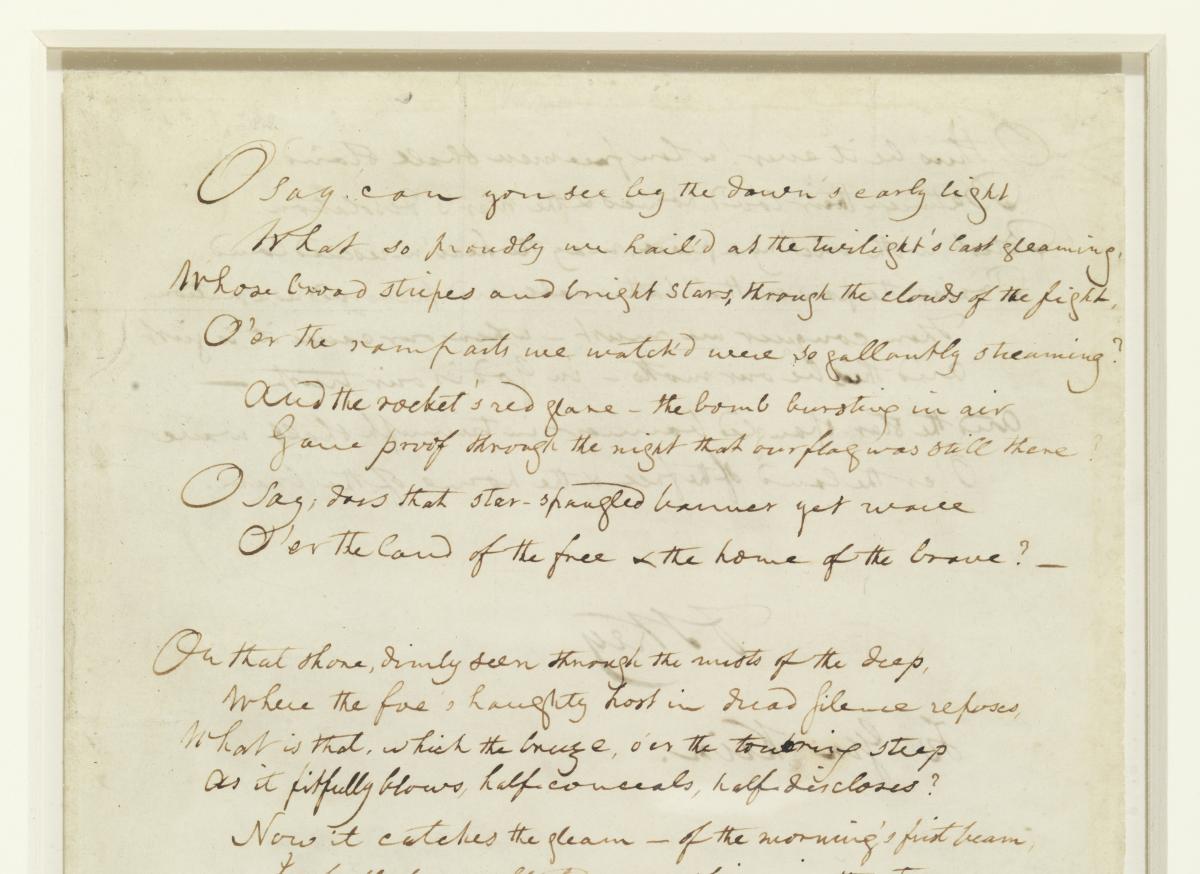 O say can you see by the dawn's early light
What so proudly we hail'd at the twilight's last gleaming,
Whose broad stripes and bright stars, through the clouds of the fight,
O'er the ramparts we watch'd were so gallantly streaming?
And the rocket's red glare – the bomb bursting in air
Gave proof through the night that our flag was still there?
O say, does that star-spangled banner yet wave
O'er the land of the free & the home of the brave? –
On that shore, dimly seen through the mists of the deep,
Where the foe's haughty host in dread silence reposes,
What is that, which the breeze, o'er the towering steep
As it fitfully blows, half conceals, half discloses?
Now it catches the gleam – of the morning's first beam,